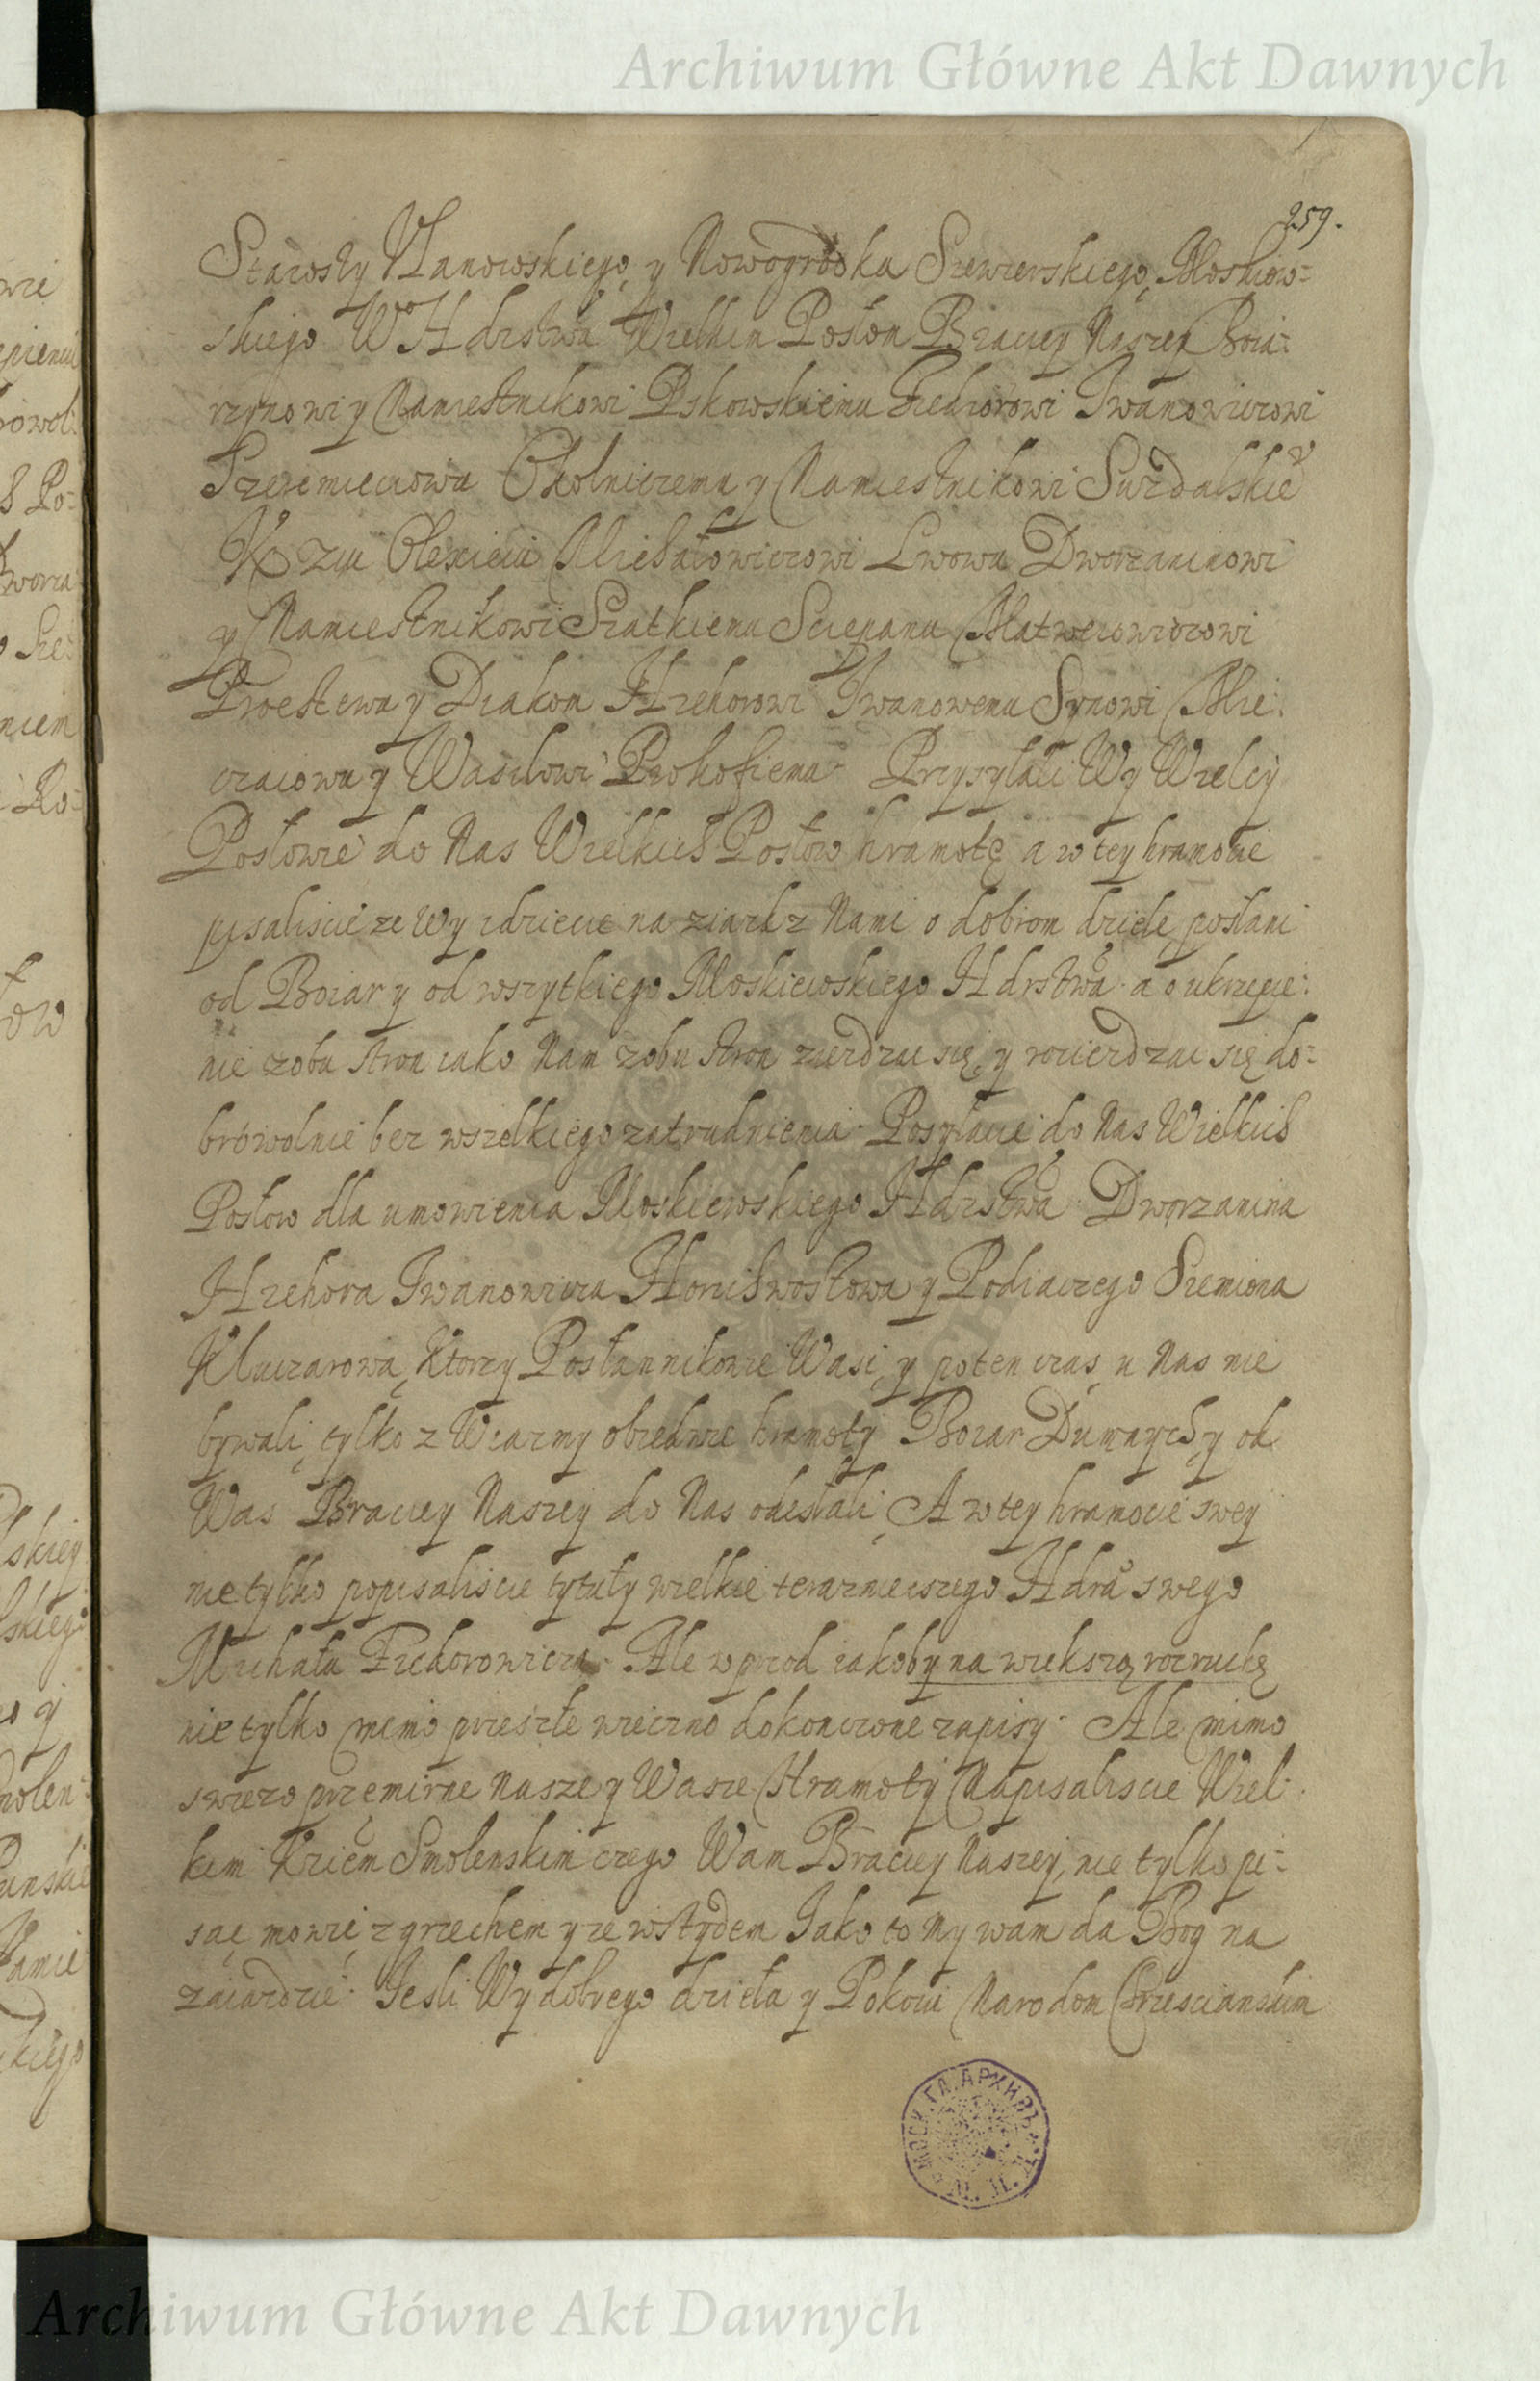 Archiwum Główne Akt Dawnych
259.
Starosty Uzanowskiego, y Nowogrodka Siewierskiego, Moskiew-
skiego W Hdrstwa Wielkim Posłom Braciey Naszey Boia-
rzynowi y Namiestnikowi Pskowskiemu Fiedorowi Iwanowiczowi
Szeremieciowu Okolniczemu y Namiestnikowi Suzdalskie
Kziu Olexieiu Michałowiczowi Lwowu Dworzaninowi
y Namiestnikowi Szatkiemu Sciepanu Matweiowiczowi
Proestewu y Diakom Hrehorowi Iwanowemu Synowi
y Wasilowi Prokofiemu Przysyłali Wy Wielcy
Posłowie do Nas Wielkich Posłow hramotę a w tey hramocie
pisaliscie ze Wy idziecie na ziazd z Nami o dobrom dziele posłani
od Boiar y od wszytkiego Moskiewskiego Hdrstwa a o ukrzepie-
nie z obu stron iako Nam z obu stron ziezdzac się, y rozierdzac się do-
browolnie bez wszelkiego zatrudnienia Posyłacie do Nas Wielkich
Posłow dla umowienia Moskiewskiego Hdrstwa Dworzanina
Hrehora Iwanowicza Horichwostowa y Podiaczego Siemiona
Kluczarowa, Ktorzy Posłannikowie Wasi, y poten czas, u Nas nie
bywali, tylko z Wiazmy obiedwie hramoty Boiar Dumnych y od
Was Braciey Naszey do Nas odesłali, A w tey hramocie swey
nie tylko popisaliscie tytuły wielkie teraznieiszego Hdra swego
Michała Fiedorowicza Ale wprzod iakoby na wiekszą rozruchę
nie tylko mimo przeszłe wieczno dokonczone zapisy Ale mimo
swiezo przemirne Nasze y Wasze Hramoty Napisaliscie Wiel-
kim Kziem Smolenskim czego Wam Braciey Naszey, nie tylko pi-
sac, mowic, z grzechem y ze wstydem Iako to My wam da Bog na
ziazdzie Iesli Wy dobrego dzieła y Pokoiu Narodom Chrzescianskim
МОСК. ГЛ. АРХИВЪ М. И. Д.
Archiwum Główne Akt Dawnych